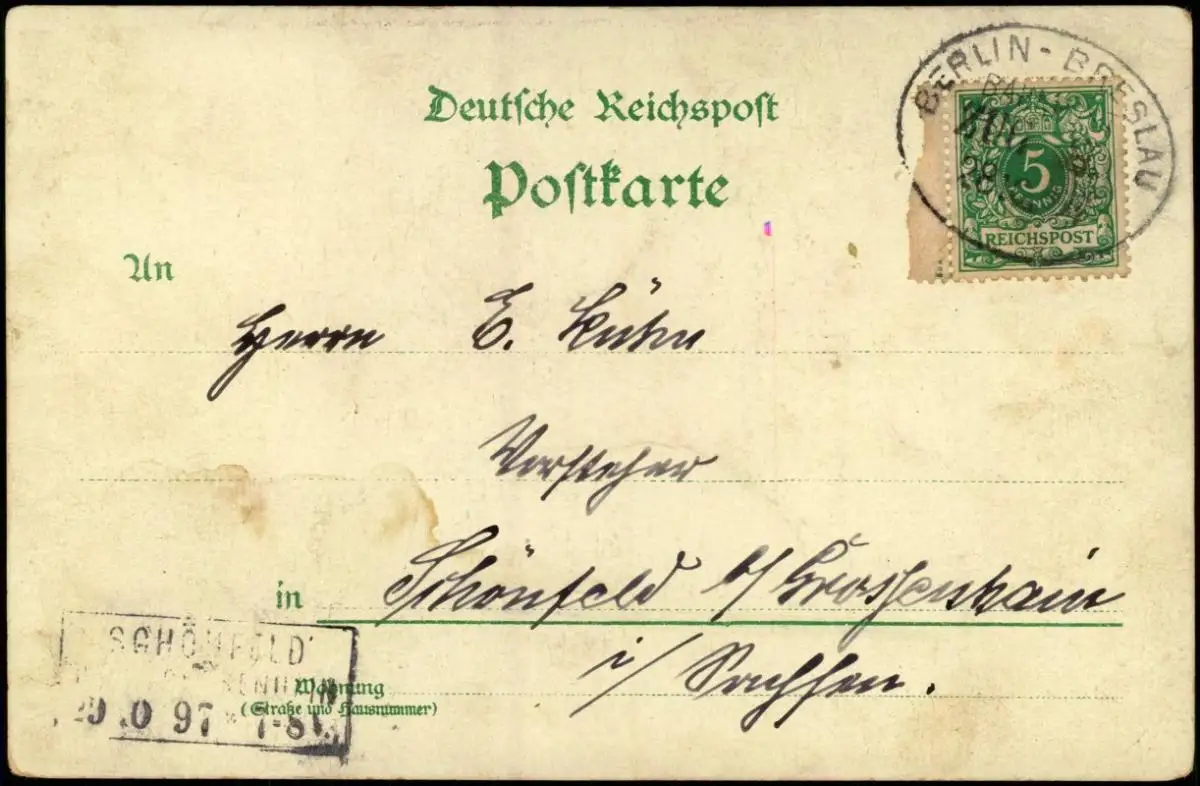 Deutsche Reichspost
Postkarte
BERLIN - BRESLAU
BAHN
ZUG
28
5
PFENNIG
REICHSPOST
An
Herrn E. Kühn
Vorsteher
in Schönfeld b/ Grossenhain
i/ Sachsen.
SCHÖNFELD
97 7-8
Wohnung
(Straße und Hausnummer)